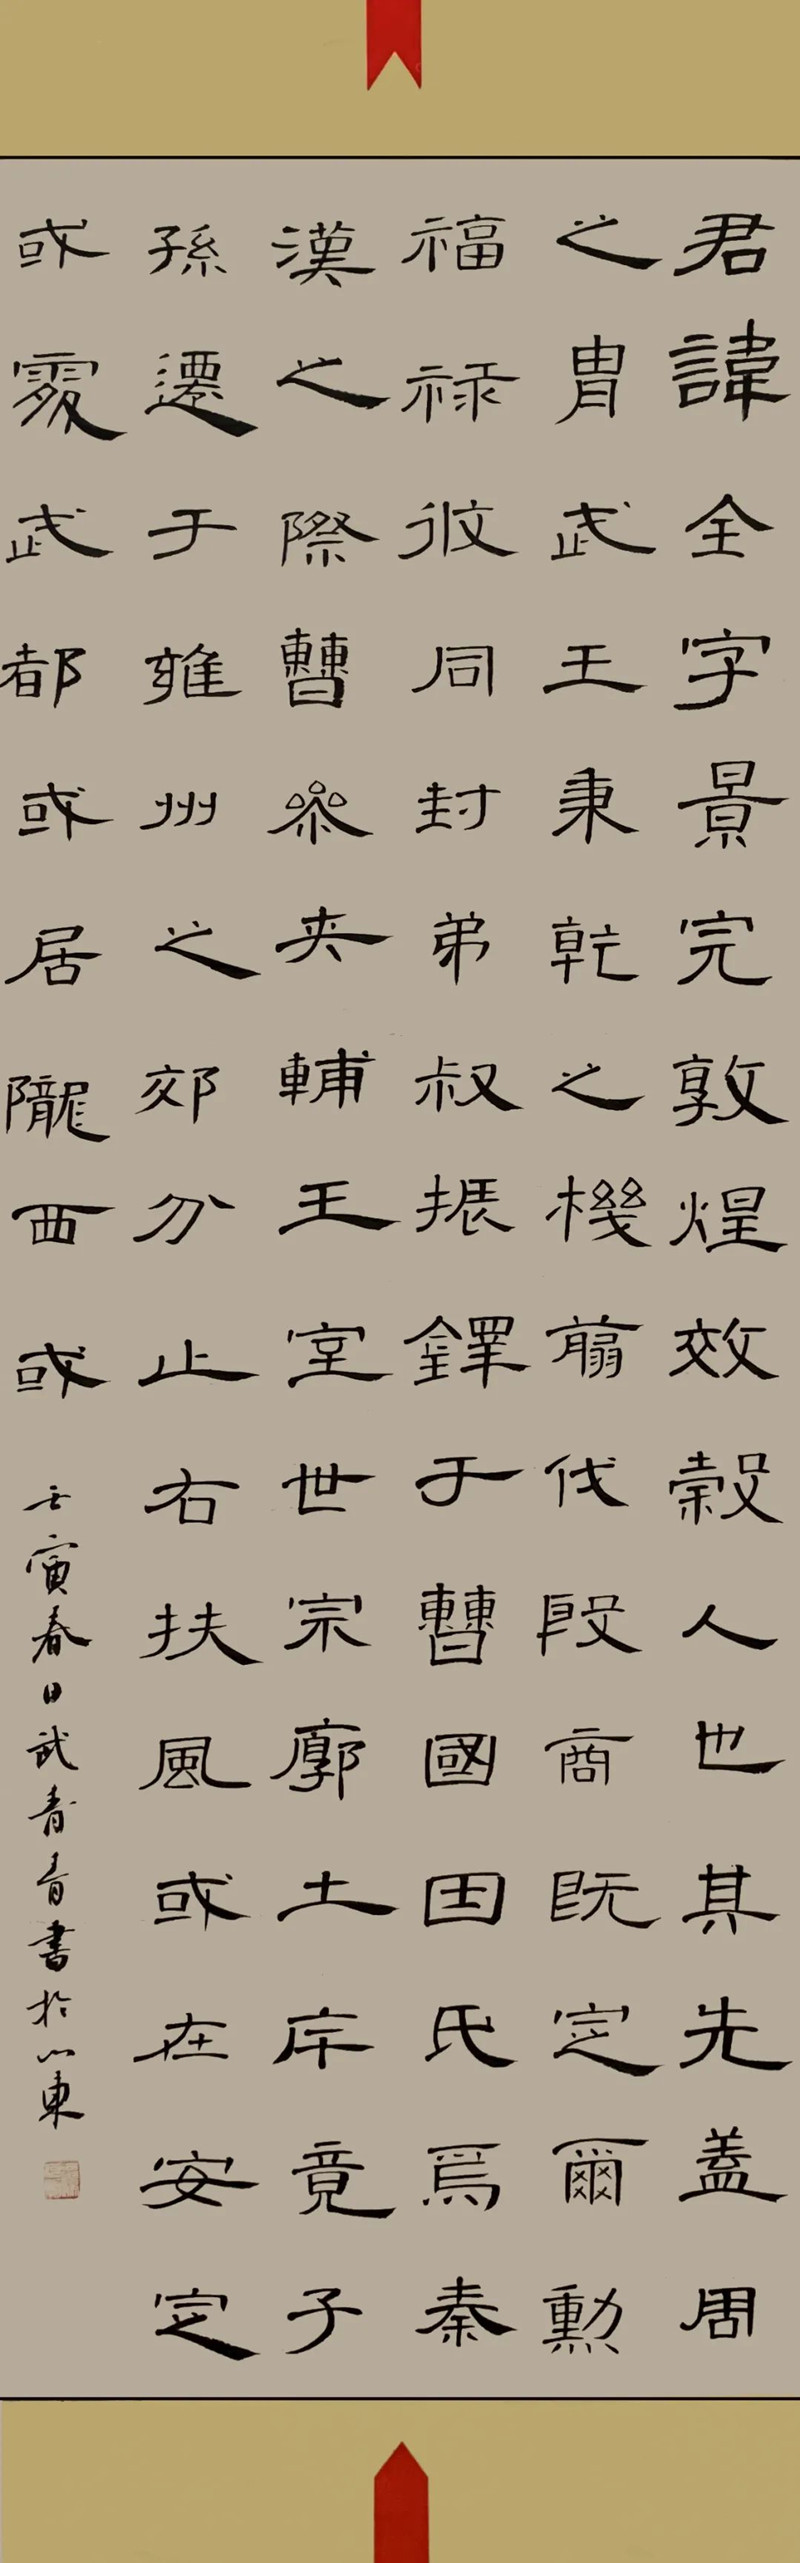 君諱全字景完敦煌效穀人也其先蓋周
之胄武王秉乾之機翦伐殷商既定爾勳
福祿攸同封弟叔振鐸于曹國因氏焉秦
漢之際曹參夾輔王室世宗廓土斥竟子
孫遷于雍州之郊分止右扶風或在安定
或處武都或居隴西或
壬寅春日武青青書於山東